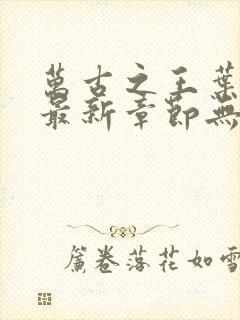 萬古之王葉
最新章節無
簾卷落花如雪